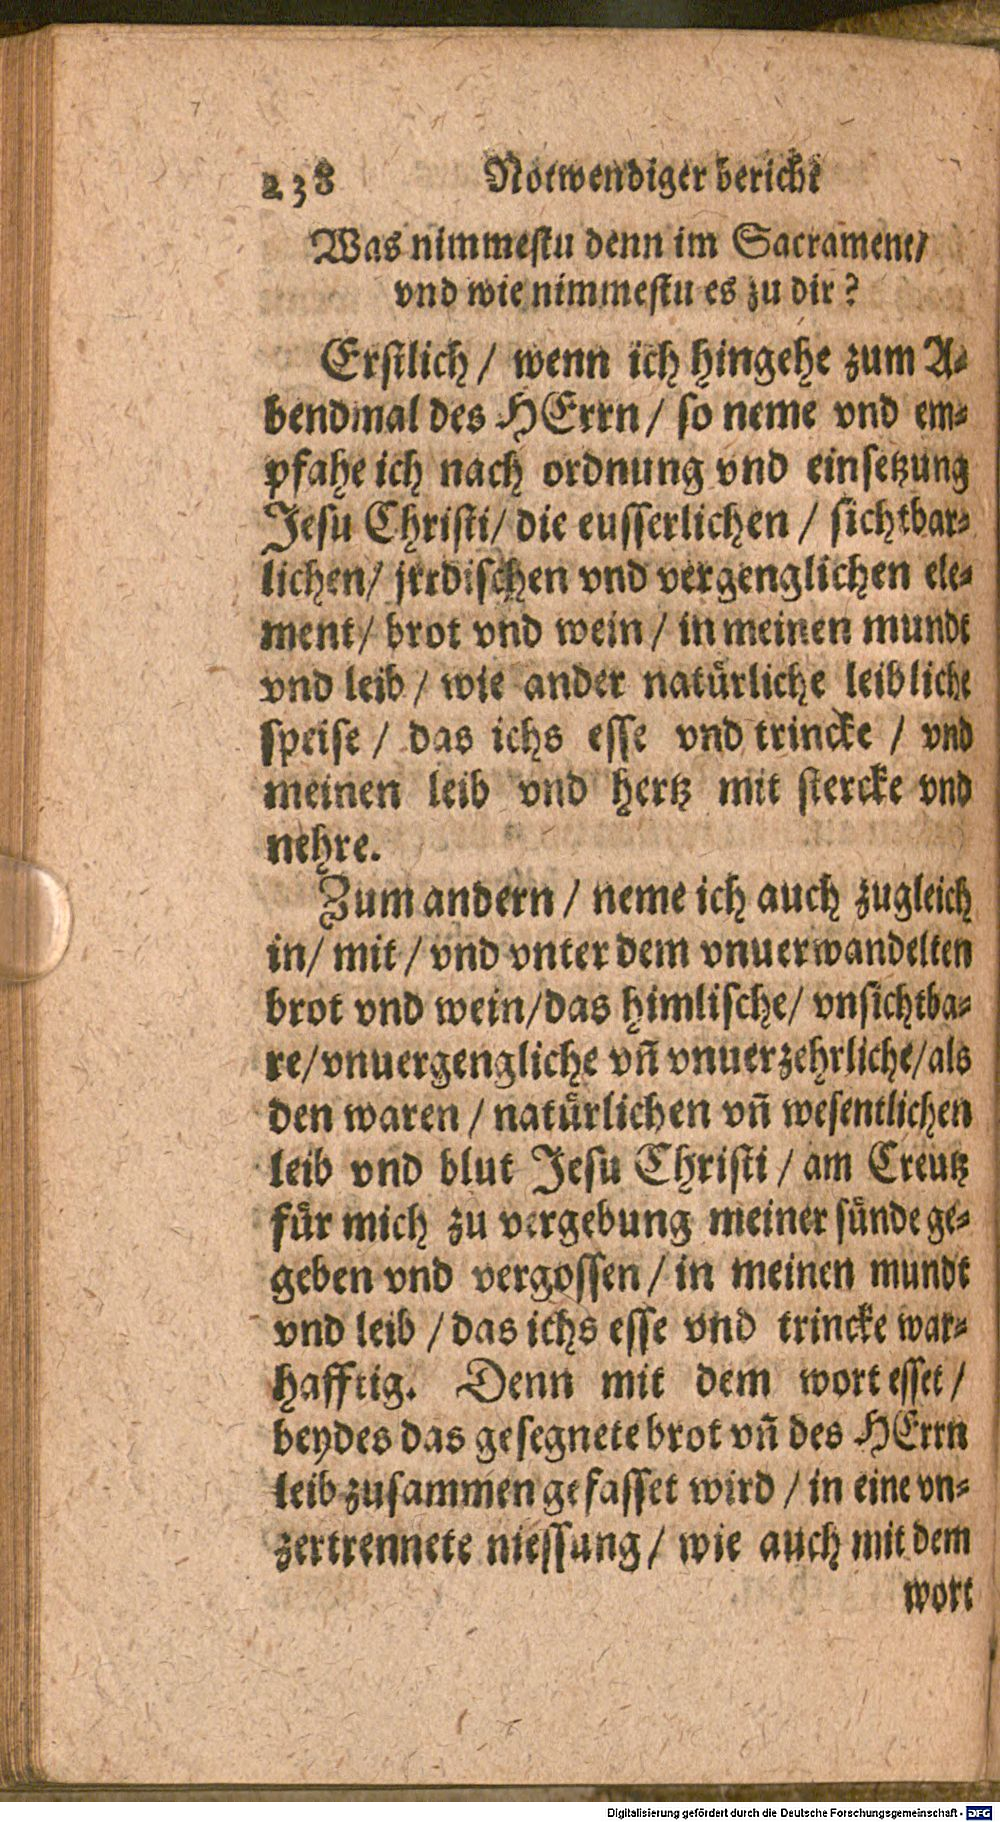 238 Notwendiger bericht
Was nimmestu denn im Sacrament/
vnd wie nimmestu es zu dir?
Erstlich / wenn ich hingehe zum A-
bendmal des HErrn / so neme vnd em-
pfahe ich nach ordnung vnd einsetzung
Jesu Christi/ die eusserlichen / sichtbar-
lichen/ jrrdischen vnd vergenglichen ele-
ment/ brot vnd wein / in meinen mundt
vnd leib / wie ander natürliche leibliche
speise / das ichs esse vnd trincke / vnd
meinen leib vnd hertz mit stercke vnd
nehre.
Zum andern / neme ich auch zugleich
in/ mit / vnd vnter dem vnuerwandelten
brot vnd wein/das himlische/ vnsichtba-
re/vnuergengliche vñ vnuerzehrliche/als
den waren / natürlichen vñ wesentlichen
leib vnd blut Jesu Christi / am Creutz
für mich zu vergebung meiner sünde ge-
geben vnd vergossen / in meinen mundt
vnd leib / das ichs esse vnd trincke war-
hafftig. Denn mit dem wort esset /
beydes das gesegnete brot vñ des HErrn
leib zusammen gefasset wird / in eine vn-
zertrennete niessung / wie auch mit dem
wort
Digitalisierung gefördert durch die Deutsche Forschungsgemeinschaft - DFG